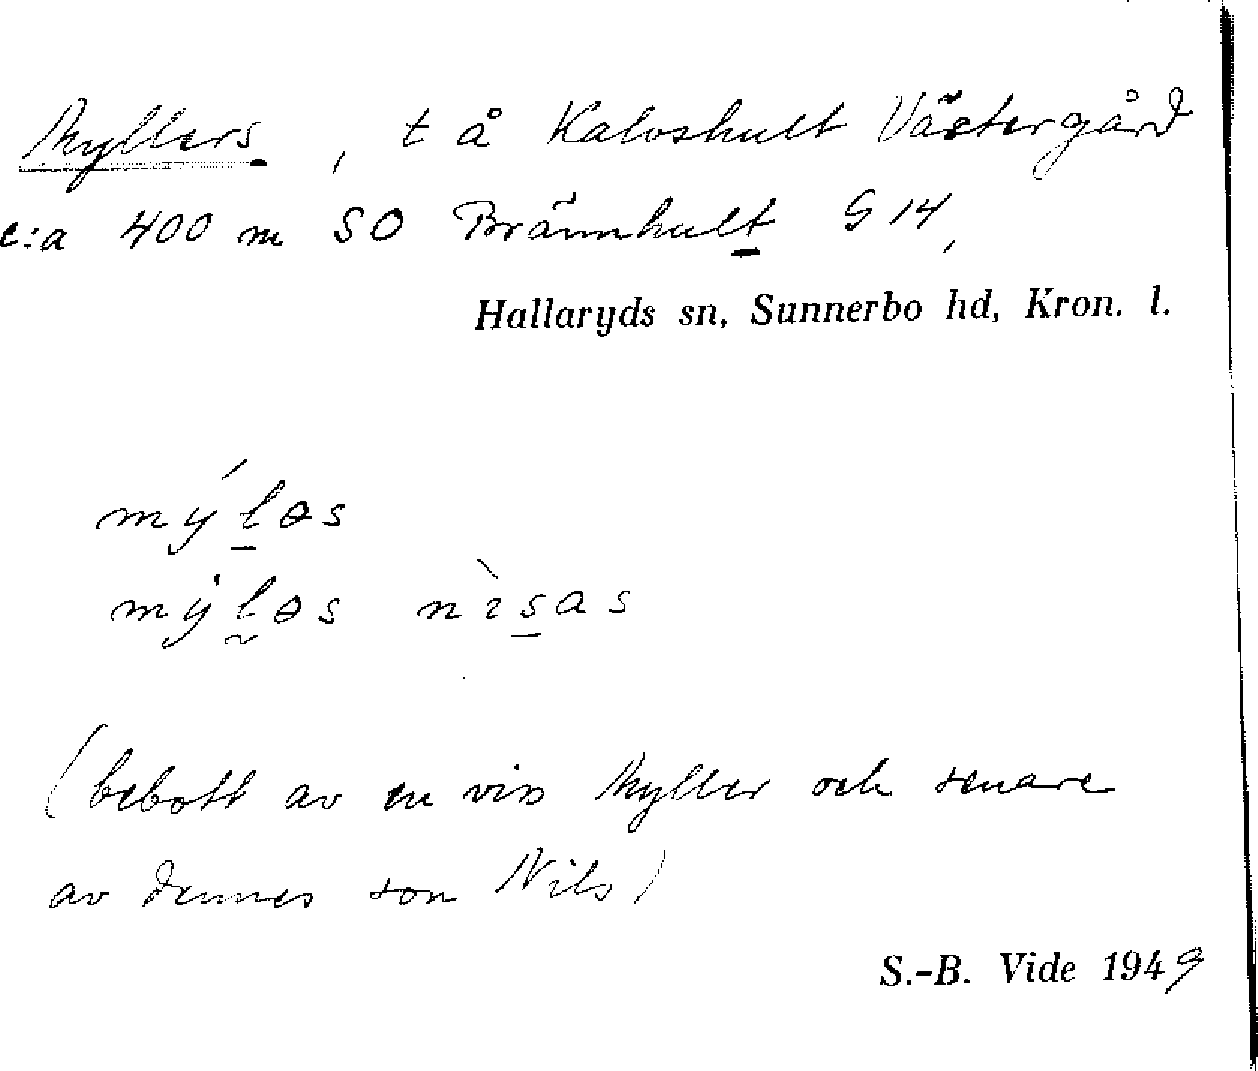 Myllers, t å Kalvshult Västergård
c:a 400 m SO Brännhult G 14,
Hallaryds sn, Sunnerbo hd, Kron. l.
mýləs
mýləs nìsas
(bebott av en viss Myller och senare
av dennes son Nils)
S.-B. Vide 1949